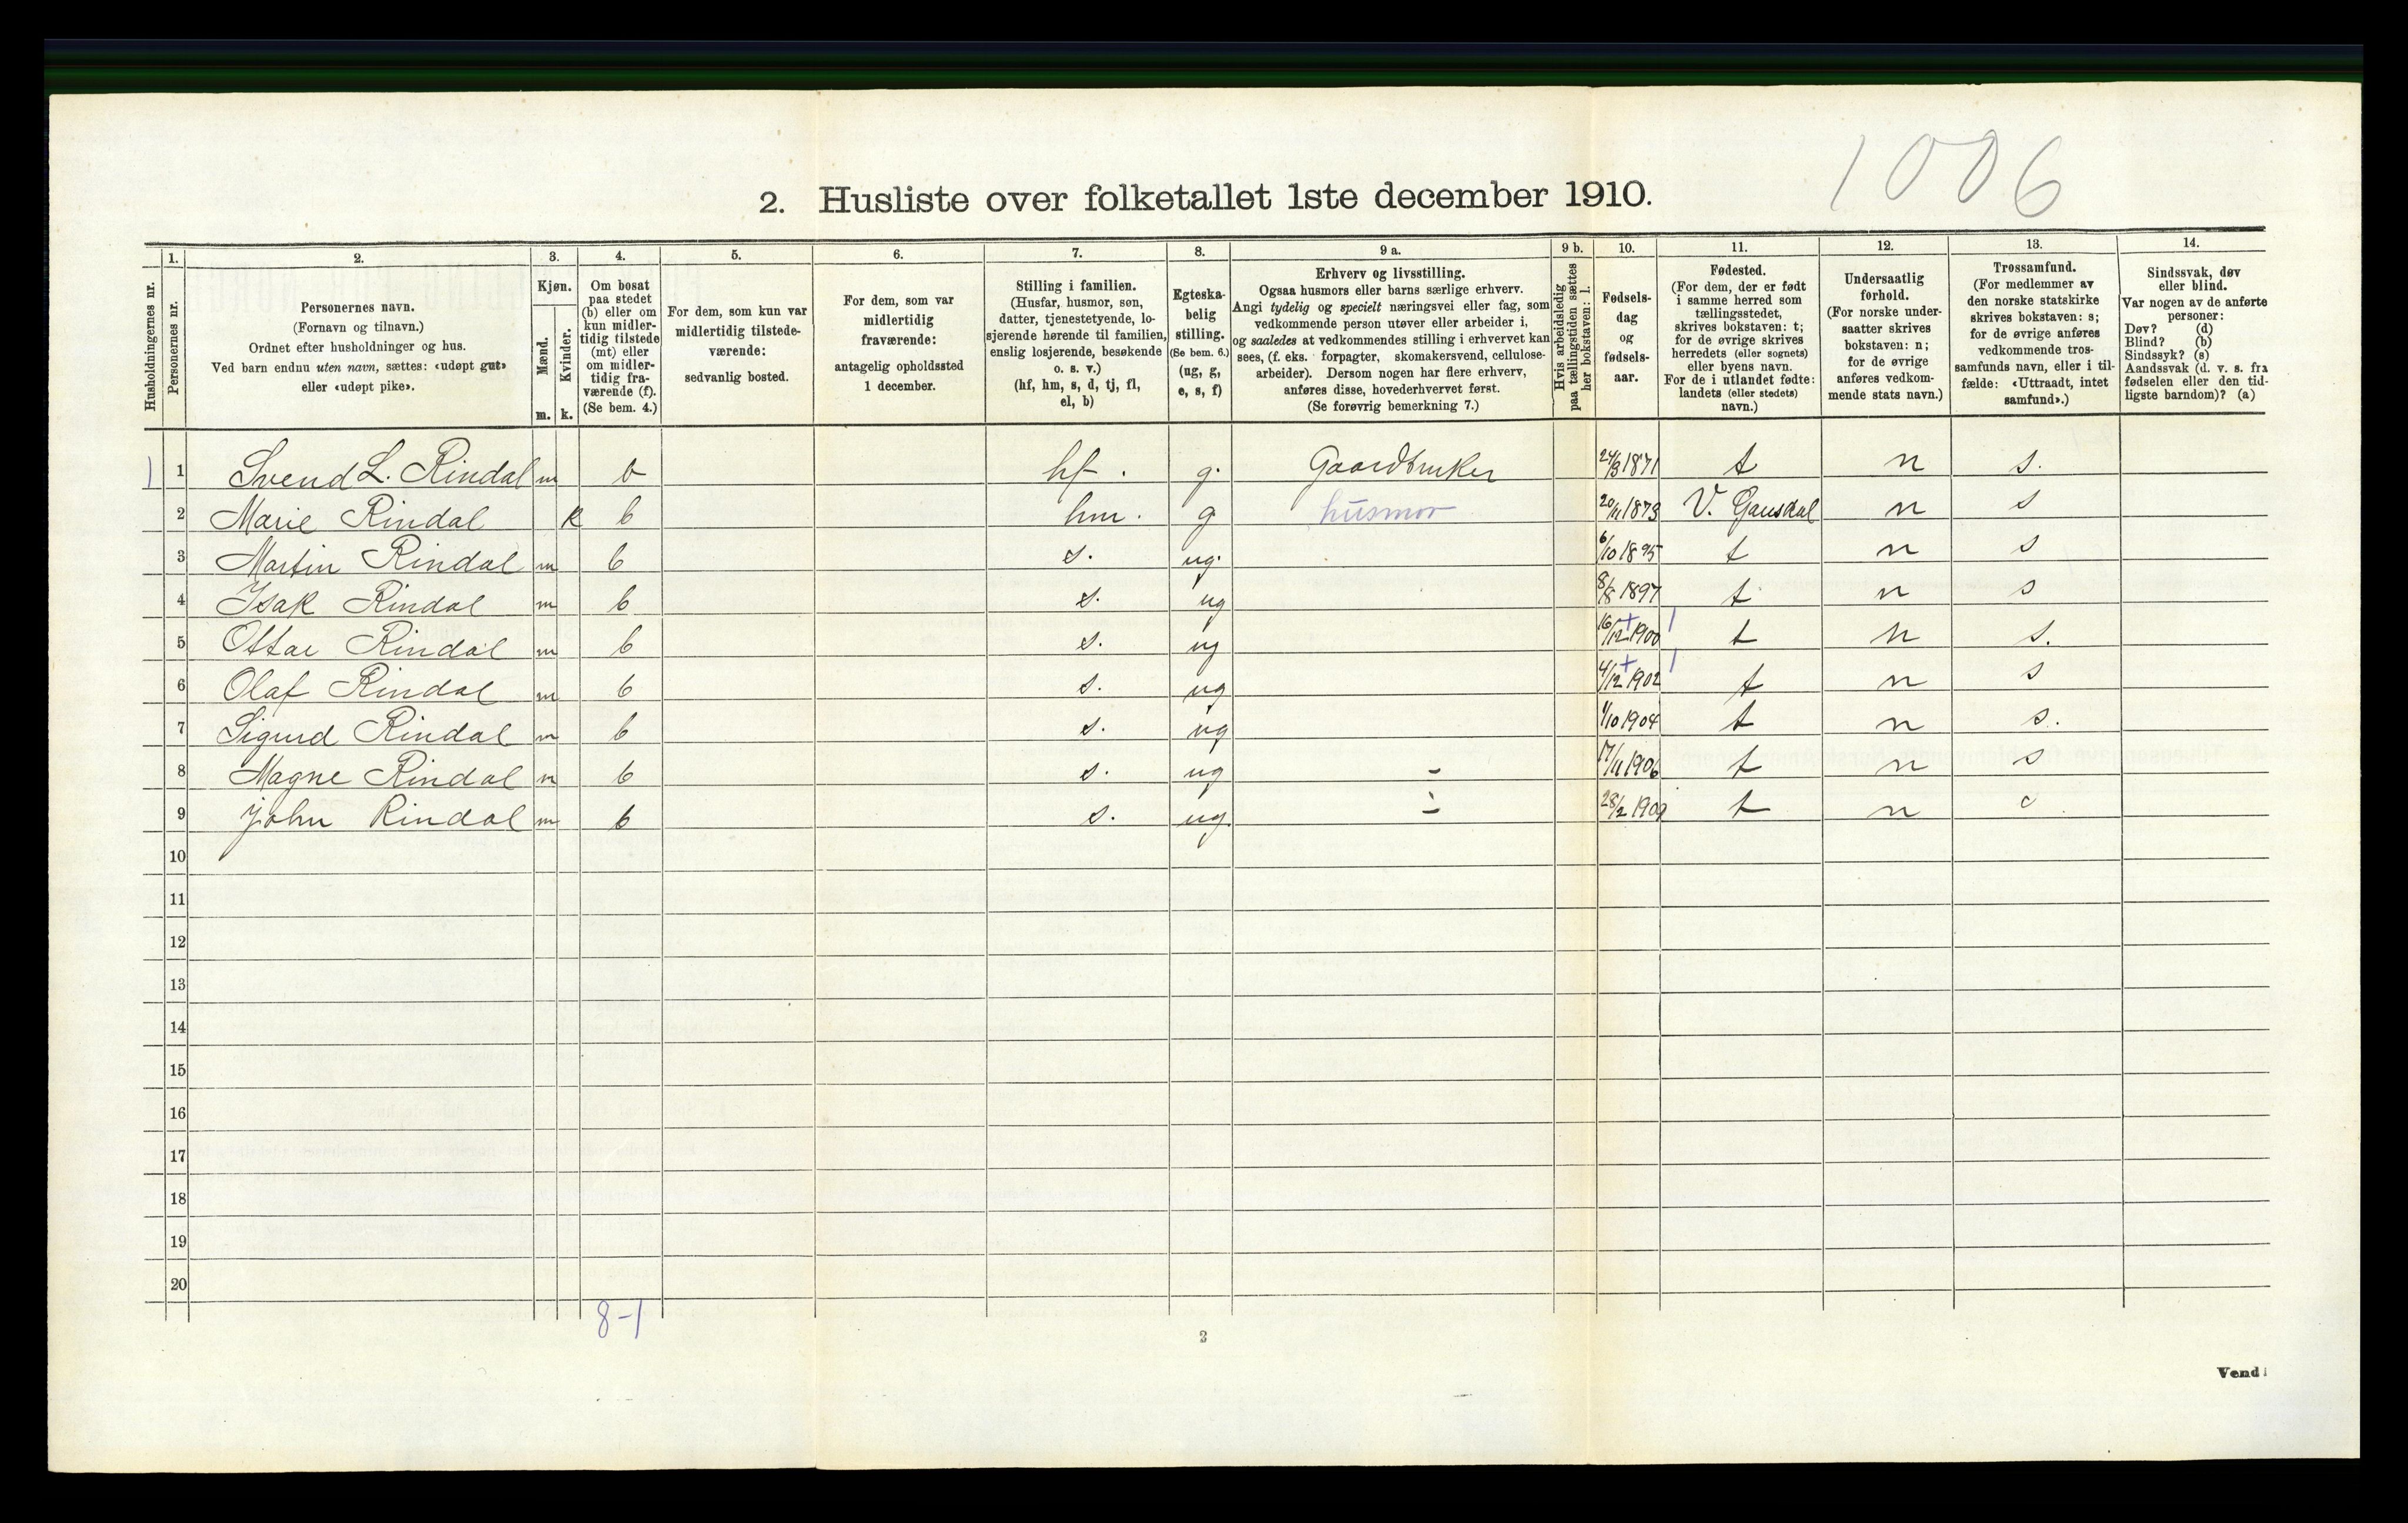 1006
2. Husliste over folketallet 1ste december 1910.
Husholdningernes nr.
1.
Personernes nr.
2.
Personernes navn.
(Fornavn og tilnavn.)
Ordnet efter husholdninger og hus.
Ved barn endnu uten navn, sættes: «udøpt gut»
eller «udøpt pike».
3.
Kjøn.
Mænd.
Kvinder.
m. k.
4.
Om bosat
paa stedet
(b) eller om
kun midler-
tidig tilstede
(mt) eller
om midler-
tidig fra-
værende (f).
(Se bem. 4.)
5.
For dem, som kun var
midlertidig tilstede-
værende:
sedvanlig bosted.
6.
For dem, som var
midlertidig
fraværende:
antagelig opholdssted
1 december.
7.
Stilling i familien.
(Husfar, husmor, søn,
datter, tjenestetyende, lo-
sjerende hørende til familien,
enslig losjerende, besøkende
o. s. v.)
(hf, hm, s, d, tj, fl,
el, b)
8.
Egteska-
belig
stilling.
(Se bem. 6.)
(ug, g,
e, s, f)
9 a.
Erhverv og livsstilling.
Ogsaa husmors eller barns særlige erhverv.
Angi tydelig og specielt næringsvei eller fag, som
vedkommende person utøver eller arbeider i,
og saaledes at vedkommendes stilling i erhvervet kan
sees, (f. eks. forpagter, skomakersvend, cellulose-
arbeider). Dersom nogen har flere erhverv,
anføres disse, hovederhvervet først.
(Se forøvrig bemerkning 7.)
9 b.
Hvis arbeidsledig
paa tællingstiden sættes
her bokstaven: l.
10.
Fødsels-
dag
og
fødsels-
aar.
11.
Fødested.
(For dem, der er født
i samme herred som
tællingsstedet,
skrives bokstaven: t;
for de øvrige skrives
herredets (eller sognets)
eller byens navn.
For de i utlandet fødte:
landets (eller stedets)
navn.)
12.
Undersaatlig
forhold.
(For norske under-
saatter skrives
bokstaven: n;
for de øvrige
anføres vedkom-
mende stats navn.)
13.
Trossamfund.
(For medlemmer av
den norske statskirke
skrives bokstaven: s;
for de øvrige anføres
vedkommende tros-
samfunds navn, eller i til-
fælde: «Uttraadt, intet
samfund».)
14.
Sindssvak, døv
eller blind.
Var nogen av de anførte
personer:
Døv? (d)
Blind? (b)
Sindssyk? (s)
Aandssvak (d. v. s. fra
fødselen eller den tid-
ligste barndom)? (a)
1 1 Svend L. Rindal m b hf. g. Gaardbruker 24/3 1871 t n s.
2 Marie Rindal k b hm. g husmor 20/11 1873 V. Gausdal n s
3 Martin Rindal m b s. ug. 6/10 1895 t n s
4 Isak Rindal m b s. ug 8/8 1897 t n s
5 Ottar Rindal m b s. ug 16/12 + 1900 / t n s.
6 Olaf Rindal m b s. ug 4/12 + 1902 / t n s
7 Sigurd Rindal m b s. ug 1/10 1904 t n s.
8 Magne Rindal m b s. ug - 17/11 1906 t n s
9 John Rindal m b s. ug. - 28/2 1909 t n s
10
11
12
13
14
15
16
17
18
19
20
8-1
3
Vend!